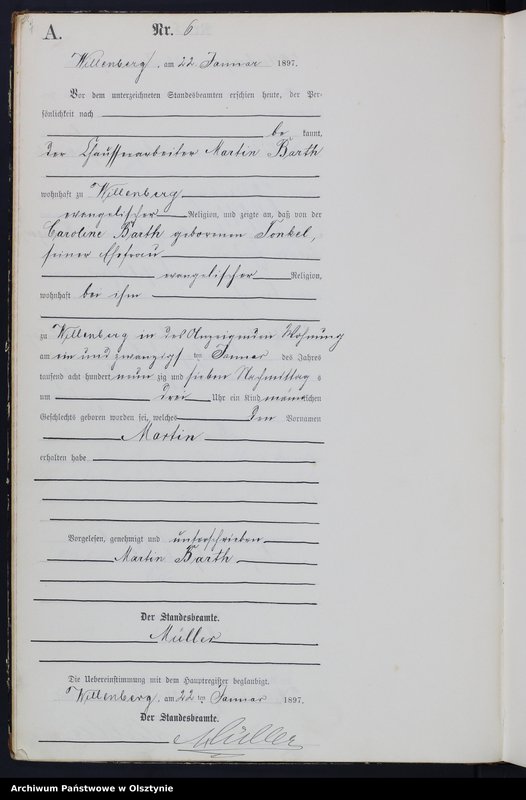 A.
Nr. 6
Willenberg, am 22 Januar 1897.
Vor dem unterzeichneten Standesbeamten erschien heute, der Per-
sönlichkeit nach
be kannt,
der Chausseearbeiter Martin Barth
wohnhaft zu Willenberg
evangelischer Religion, und zeigte an, daß von der
Caroline Barth geborenen Sonkel,
seiner Ehefrau
evangelischer Religion,
wohnhaft bei ihm
zu Willenberg in des Anzeigenden Wohnung
am ein und zwanzigsten Januar des Jahres
tausend acht hundert neun zig und sieben Nachmittag s
um drei Uhr ein Kind männlichen
Geschlechts geboren worden sei, welches den Vornamen
Martin
erhalten habe
Vorgelesen, genehmigt und unterschrieben
Martin Barth
Der Standesbeamte.
Müller
Die Uebereinstimmung mit dem Hauptregister beglaubigt.
Willenberg, am 22 ten Januar 1897.
Der Standesbeamte.
Müller
Archiwum Państwowe w Olsztynie